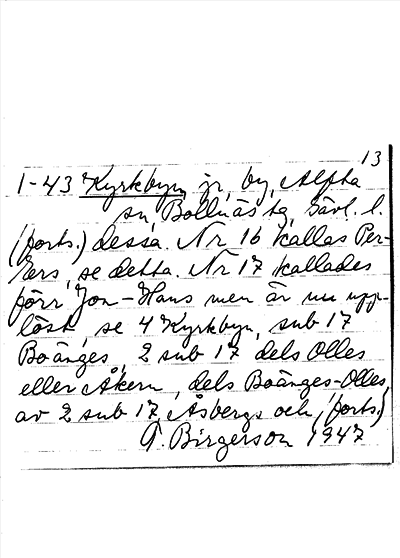 13
1-43 Kyrkbyn, jr, by, Alfta
sn, Bollnäs tg, Gävl. l.
(forts.) dessa. Nr 16 kallas Per-
Ers, se detta. Nr 17 kallades
förr Jon-Hans men är nu upp-
löst, se 4 Kyrkbyn, sub 17
Boänges, 2 sub 17 dels Olles
eller Åkern, dels Boänges-Olles,
av 2 sub 17 Åsbergs och (forts.)
G. Birgerson 1947